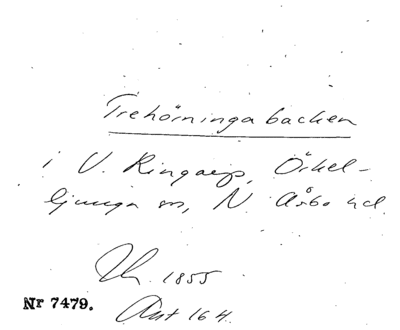 Trehörninga backen
i V. Ringarp, Örkel-
ljunga sn, N. Åsbo hd.
1855
Nr 7479.
Ant 164.